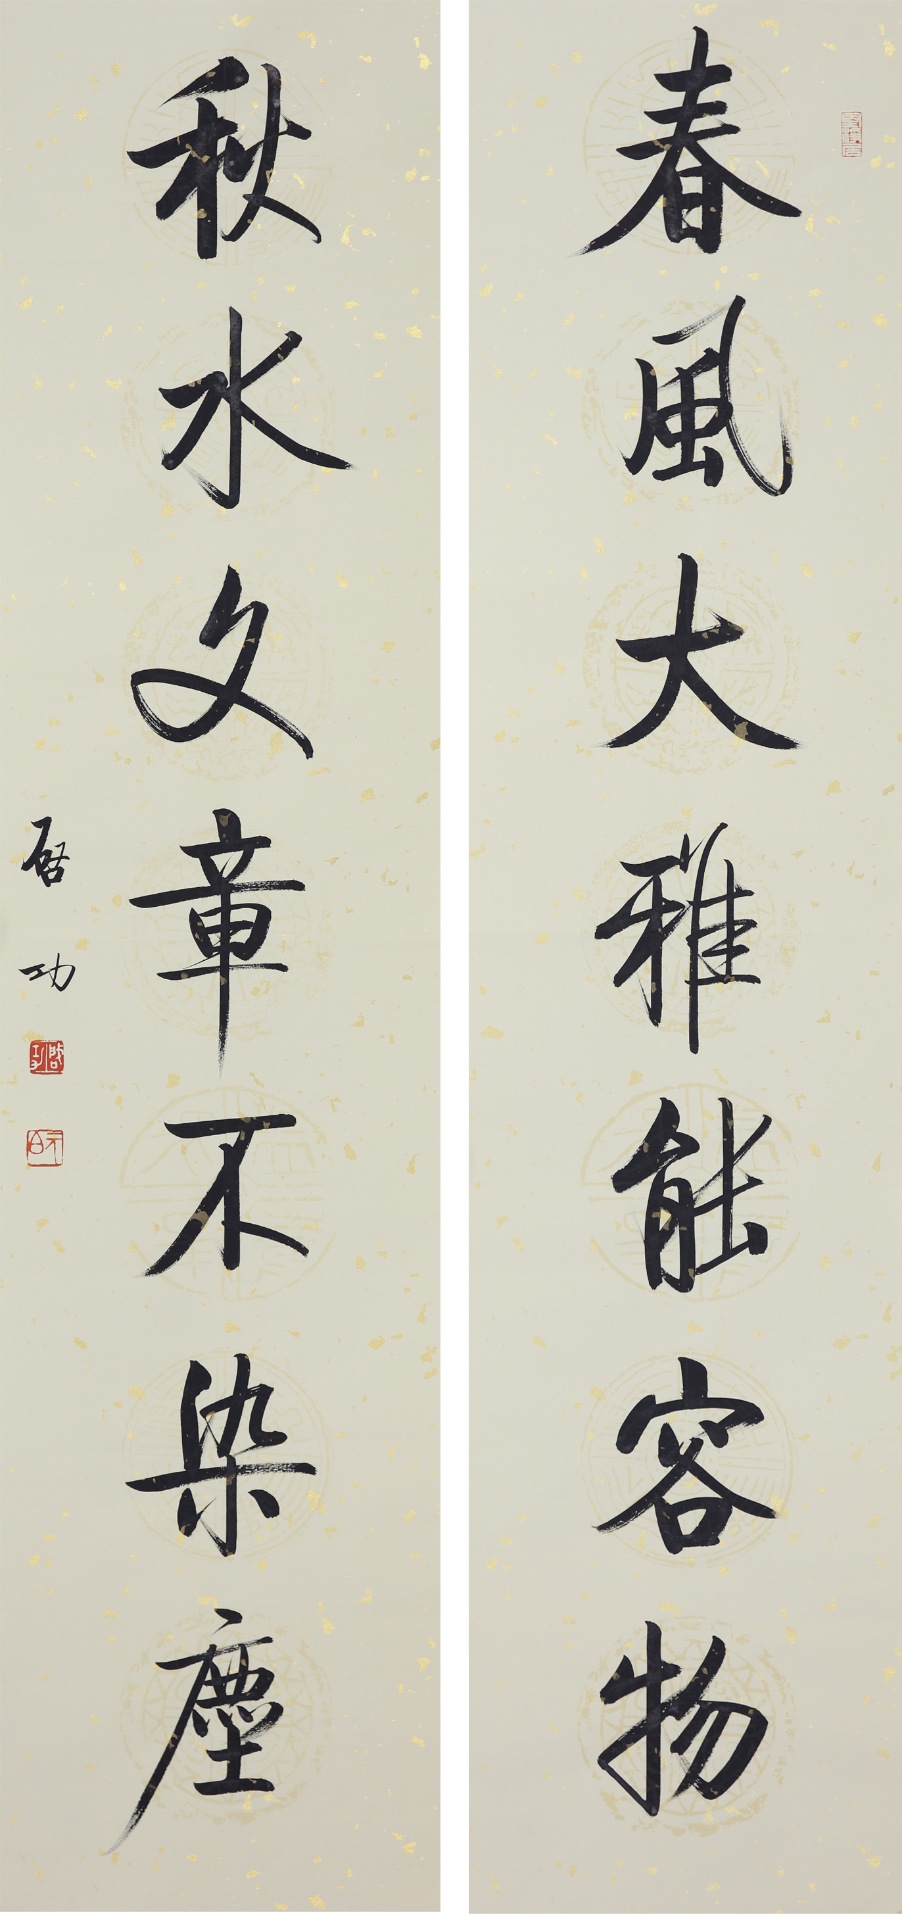 春風大雅能容物
秋水文章不染塵
啓功
啓功
元白